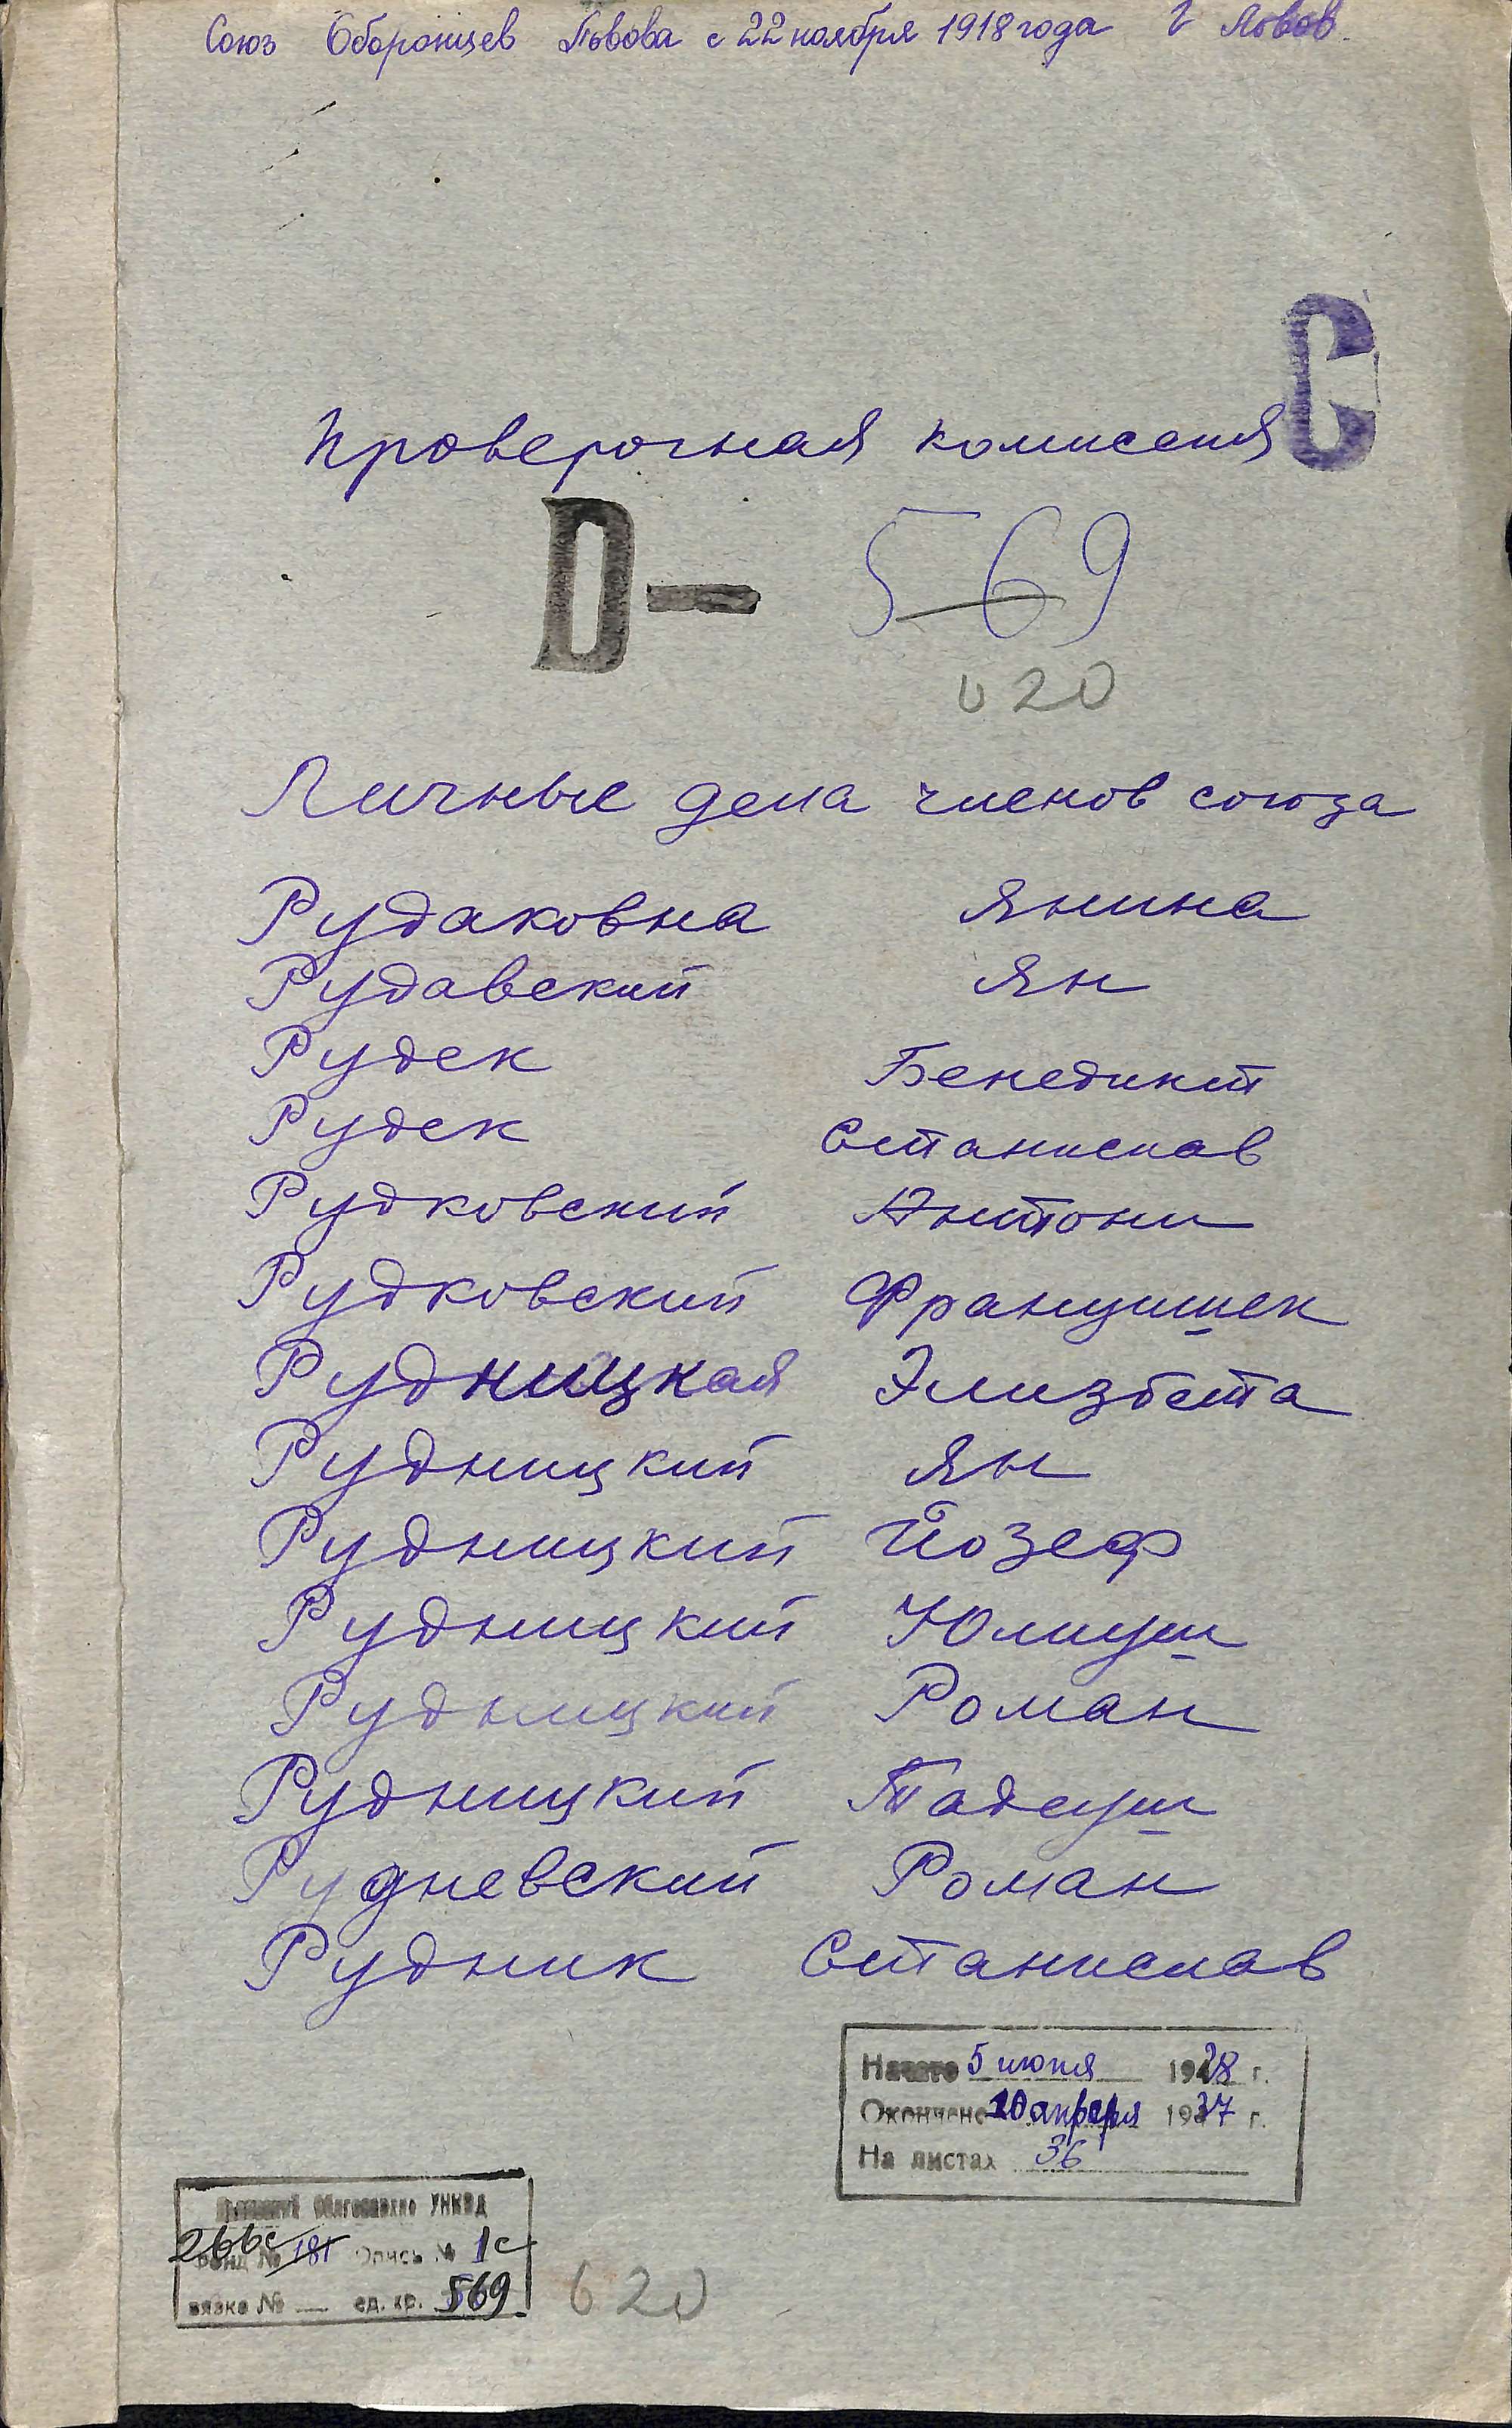 Союз Оборонцев Львова с 22 ноября 1918 года г Львов.
С
Проверочная комиссия
D—
569
620
Личные дела членов союза
Рудаковна Янина
Рудавский Ян
Рудек Бенедикт
Рудек Станислав
Рудковский Антони
Рудковский Францишек
Рудницкая Элизбета
Рудницкий Ян
Рудницкий Йозеф
Рудницкий Юлиуш
Рудницкий Роман
Рудницкий Тадеуш
Рудневский Роман
Рудник Станислав
Начато 5 июня 19 8 г.
Окончено 10 апреля 1937 г.
На листах 36
Облгосархив УНКВД
266с
Фонд № 181 Опись № 1с
вязка № — ед. хр. 569
620